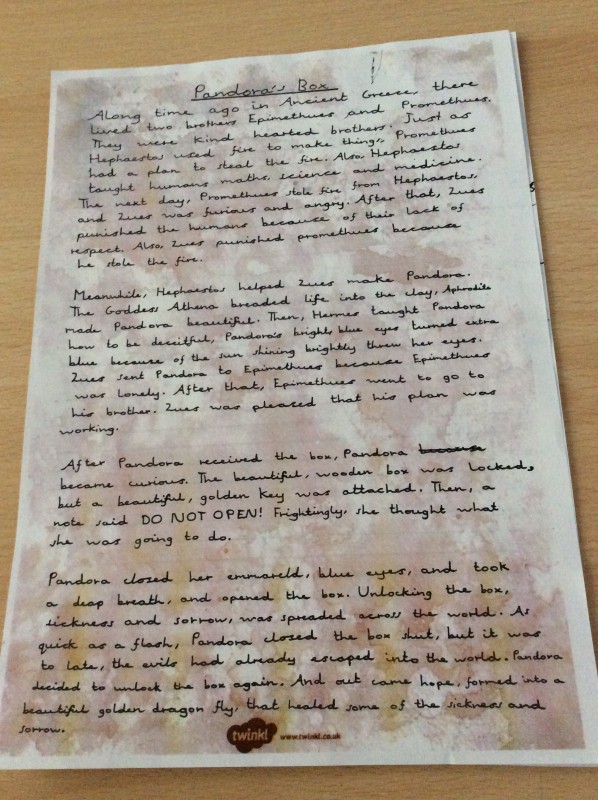 Pandora's Box
Along time ago in Ancient Greece, there
lived two brothers Epimethues and Promethues.
They were kind hearted brothers. Just as
Hephaestos used fire to make things, Promethues
had a plan to steal the fire. Also, Hephaestos
taught humans maths, science and medicine.
The next day, Promethues stole fire from Hephaestos,
and Zues was furious and angry. After that, Zues
punished the humans because of their lack of
respect. Also, Zues punished promethues because
he stole the fire.
Meanwhile, Hephaestos helped Zues make Pandora.
The Goddess Athena breaded life into the clay, Aphrodite
made Pandora beautiful. Then, Hermes taught Pandora
how to be deceitful, Pandora's bright, blue eyes turned extra
blue because of the sun shining brightly threw her eyes.
Zues sent Pandora to Epimethues because Epimethues
was lonely. After that, Epimethues went to go to
his brother. Zues was pleased that his plan was
working.
After Pandora received the box, Pandora because
became curious. The beautiful, wooden box was locked,
but a beautiful, golden key was attached. Then, a
note said DO NOT OPEN! Frightingly, she thought what
she was going to do.
Pandora closed her emmareld, blue eyes, and took
a deap breath, and opened the box. Unlocking the box,
sickness and sorrow, was spreaded across the world. As
quick as a flash, Pandora closed the box shut, but it was
to late, the evils had already escaped into the world. Pandora
decided to unlock the box again. And out came hope, formed into a
beautiful golden dragon fly, that healed some of the sickness and
sorrow.
twinkl www.twinkl.co.uk